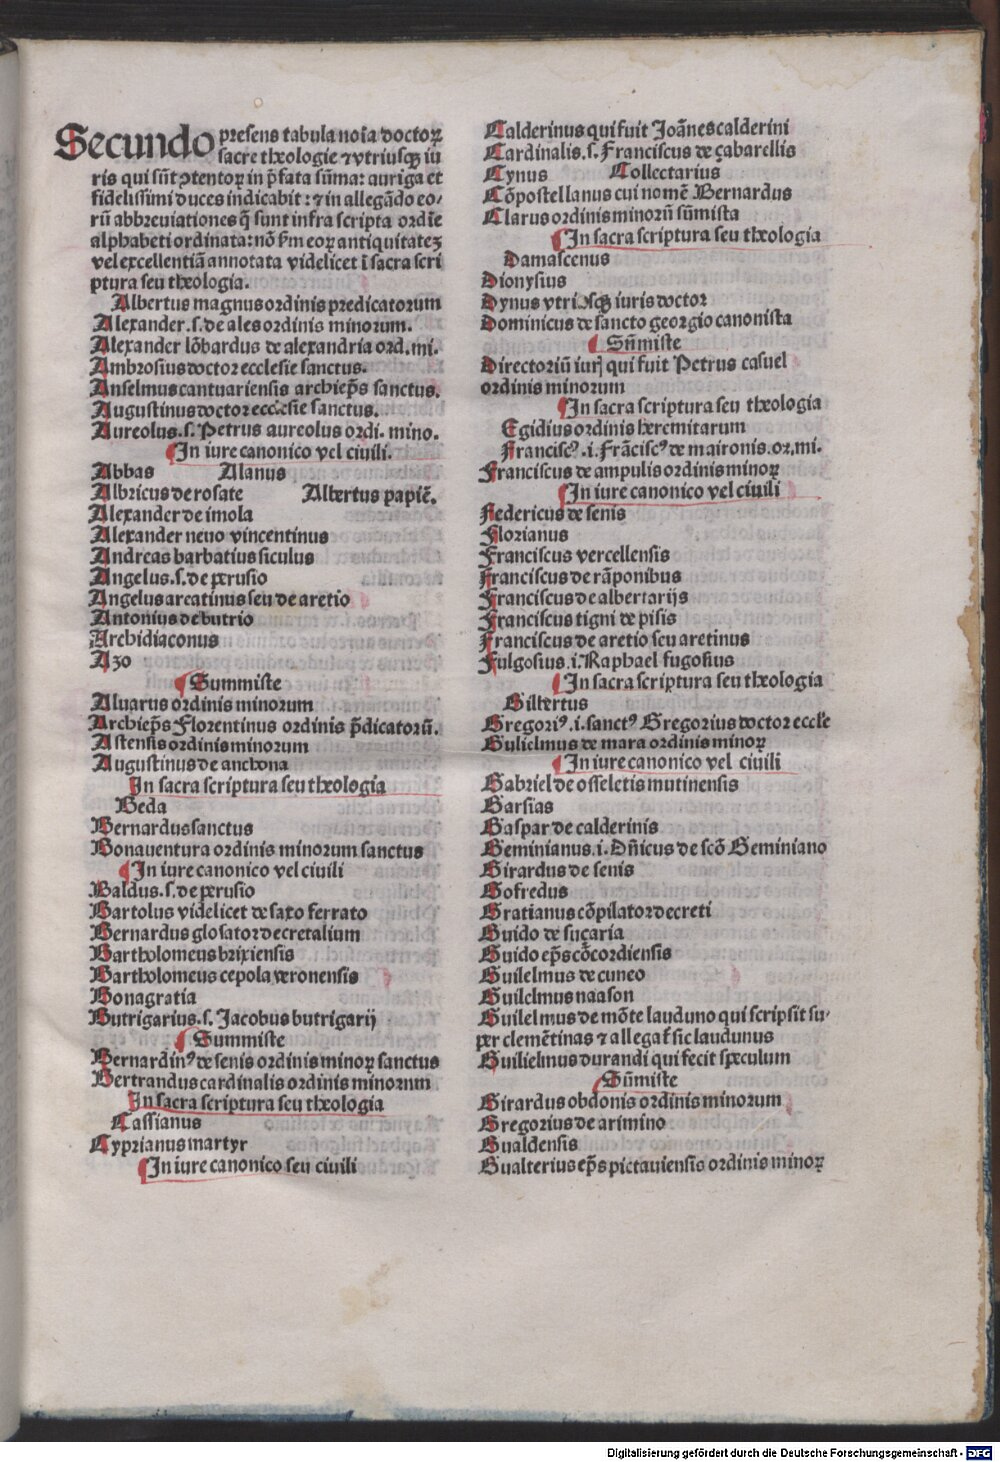 Secundo presens tabula noia doctoꝝ
sacre theologie ⁊ vtriusqꝫ iu
ris qui sūt ꝯtentoꝝ in p̄fata sūma: auriga et
fidelissimi duces indicabit: ⁊ in allegādo eo-
rū abbreuiationes q̄ sunt infra scripta ordīe
alphabeti ordinata: nō f̄m eoꝝ antiquitateʒ
vel excellentiā annotata videlicet ī sacra scri
ptura seu theologia.
Albertus magnus ordinis predicatorum
Alexander .s. de ales ordinis minorum.
Alexander lōbardus de alexandria ord. mi.
Ambrosius doctor ecclesie sanctus.
Anselmus cantuariensis archiep̄s sanctus.
Augustinus doctor ecclesie sanctus.
Aureolus .s. Petrus aureolus ordi. mino.
¶In iure canonico vel ciuili.
Abbas Alanus
Albricus de rosate Albertus papiē.
Alexander de imola
Alexander neuo vincentinus
Andreas barbatius siculus
Angelus .s. de perusio
Angelus arcatinus seu de aretio
Antonius de butrio
Archidiaconus
Azo
¶Summiste
Aluarus ordinis minorum
Archiep̄s Florentinus ordinis p̄dicatorū.
Astensis ordinis minorum
Augustinus de anchona
In sacra scriptura seu theologia
Beda
Bernardus sanctus
Bonauentura ordinis minorum sanctus
¶In iure canonico vel ciuili
Baldus .s. de perusio
Bartolus videlicet de saxo ferrato
Bernardus glosator decretalium
Bartholomeus brixiensis
Bartholomeus cepola veronensis
Bonagratia
Butrigarius .s. Jacobus butrigarij
¶Summiste
Bernardinꝰ de senis ordinis minoꝝ sanctus
Bertrandus cardinalis ordinis minorum
In sacra scriptura seu theologia
Cassianus
Cyprianus martyr
¶In iure canonico seu ciuili
Calderinus qui fuit Joānes calderini
Cardinalis .s. Franciscus de çabarellis
Cynus Collectarius
Cōpostellanus cui nomē Bernardus
Clarus ordinis minorū sūmista
¶In sacra scriptura seu theologia
Damascenus
Dionysius
Dynus vtriusqꝫ iuris doctor
Dominicus de sancto georgio canonista
¶Sūmiste
Directoriū iurꝭ qui fuit Petrus casuel
ordinis minorum
¶In sacra scriptura seu theologia
Egidius ordinis heremitarum
Franciscꝰ .i. Frāciscꝰ de maironis. or. mi.
Franciscus de ampulis ordinis minoꝝ
¶In iure canonico vel ciuili
Federicus de senis
Florianus
Franciscus vercellensis
Franciscus de rāponibus
Franciscus de albertarijs
Franciscus tigni de pisis
Franciscus de aretio seu aretinus
Fulgosius .i. Raphael fugosius
¶In sacra scriptura seu theologia
Gilbertus
Gregoriꝰ .i. sanctꝰ Gregorius doctor eccl'e
Gulielmus de mara ordinis minoꝝ
¶In iure canonico vel ciuili
Gabriel de osseletis mutinensis
Garsias
Gaspar de calderinis
Geminianus .i. Dn̄icus de scō Geminiano
Girardus de senis
Gofredus
Gratianus cōpilator decreti
Guido de suçaria
Guido ep̄s cōcordiensis
Guilelmus de cuneo
Guilelmus naason
Guilelmus de mōte lauduno qui scripsit su-
per clemētinas ⁊ allegat̄ sic laudunus
Guilielmus durandi qui fecit speculum
¶Sūmiste
Girardus obdonis ordinis minorum
Gregorius de arimino
Gualdensis
Gualterius ep̄s pictauiensis ordinis minoꝝ
Digitalisierung gefördert durch die Deutsche Forschungsgemeinschaft - DFG